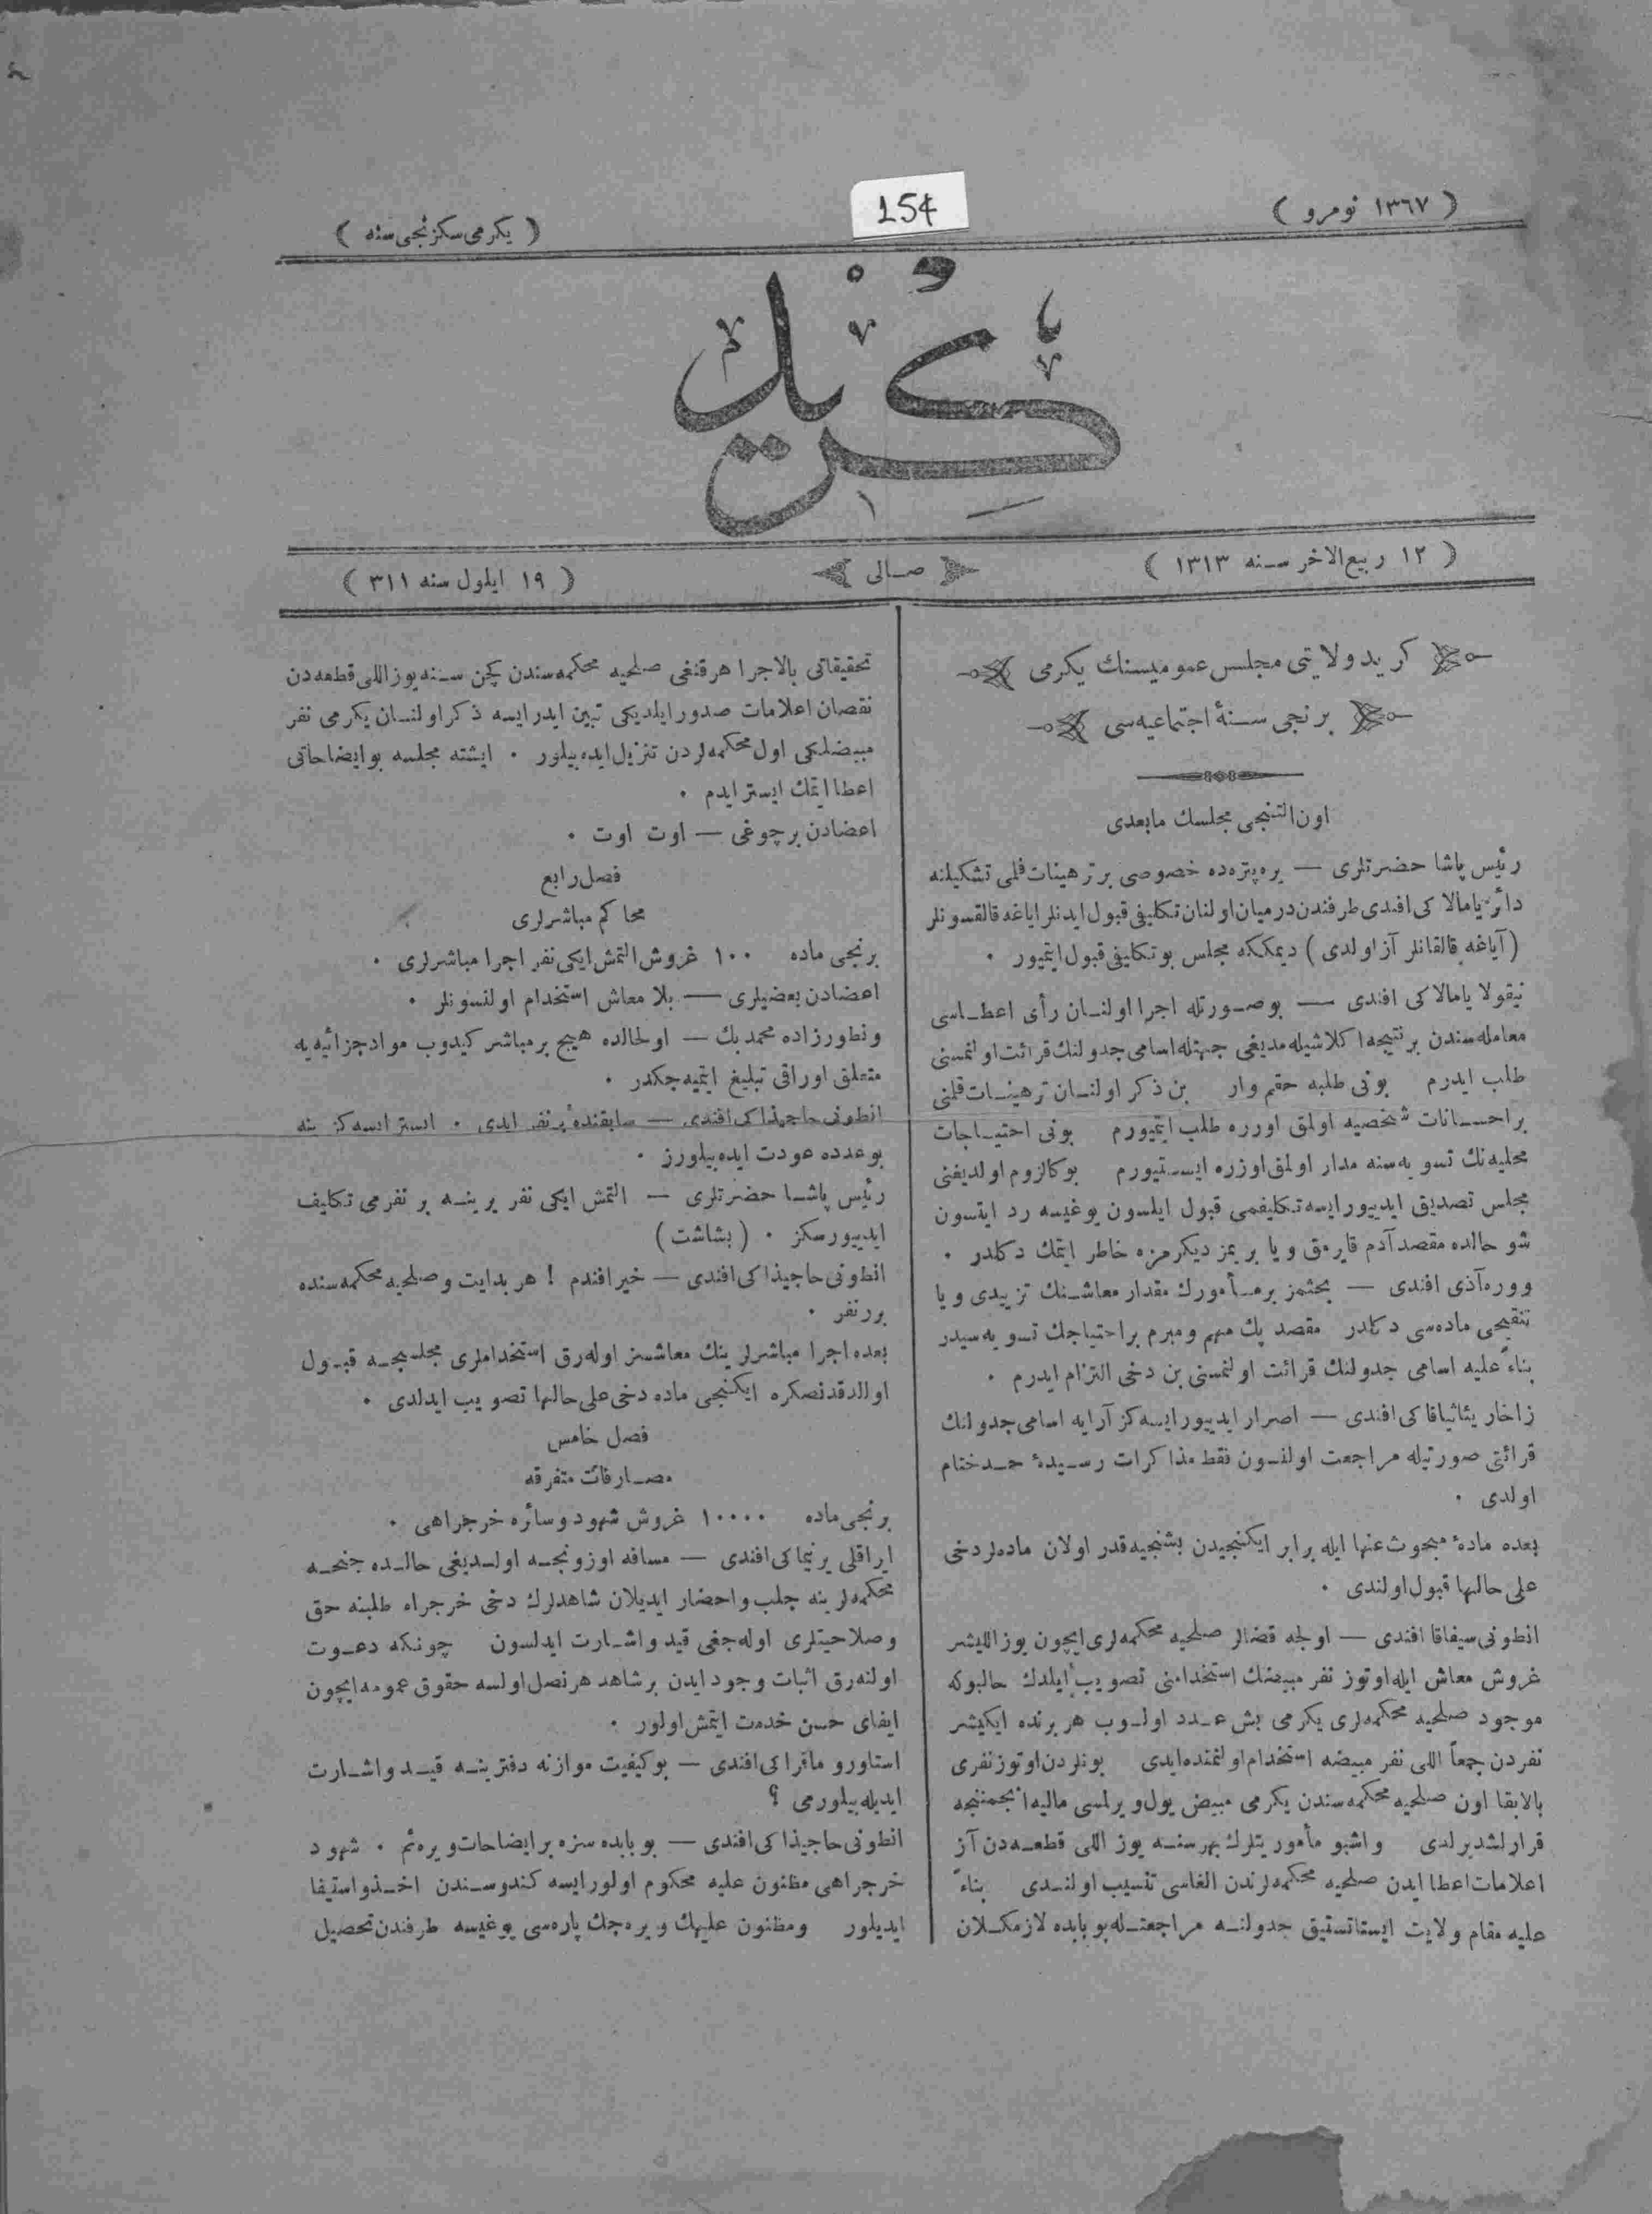 ( ١٣٦٧ نومرو )
154
( يكرمى سكزنجى سنه )
كريد
( ١٢ ربيع الاخر سنه ١٣١٣ )
صالى
( ١٩ ايلول سنه ٣١١ )
كريد ولايتى مجلس عموميسنك يكرمى
برنجى سنهٔ اجتماعيه‌سى
اون التنجى مجلسك مابعدى
رئيس پاشا حضرتلرى — يره‌پتره‌ده خصوصى بر ترهينات قلمى تشكيلنه
دائر يامالاكى افندى طرفندن درميان اولنان تكليفى قبول ايدنلر اياغه قالقسونلر
(آياغه قالقانلر آز اولدى) ديمككه مجلس بو تكليفى قبول ايتميور ٠
نيقولا يامالاكى افندى — بوصورتله اجرا اولنان رأى اعطاسى
معامله‌سندن بر نتيجه اكلاشيله‌مديغى جهتله اسامى جدولنك قرائت اولنمسنى
طلب ايدرم بونى طلبه حقم وار بن ذكر اولنان ترهينات قلمنى
بر احسانات شخصيه اولمق اوزره طلب ايتميورم بونى احتياجات
محليه‌نك تسويه‌سنه مدار اولمق اوزره ايستيورم بوكا لزوم اولديغنى
مجلس تصديق ايدييور ايسه تكليفمى قبول ايلسون يوغيسه رد ايتسون
شو حالده مقصد آدم قايرمق ويا بريمز ديكرمزه خاطر ايتمك دكلدر ٠
ووره‌آذى افندى — بحثمز بر مأمورك مقدار معاشنك تزييدى ويا
تنقيحى ماده‌سى دكلدر مقصد پك مهم ومبرم بر احتياجك تسويه‌سيدر
بناءً عليه اسامى جدولنك قرائت اولنمسنى بن دخى التزام ايدرم ٠
زاخاريئاثياقاكى افندى — اصرار ايدييور ايسه‌كز آرايه اسامى جدولنك
قرائتى صورتيله مراجعت اولنسون فقط مذاكرات رسيدهٔ حد ختام
اولدى ٠
بعده مادهٔ مبحوث عنها ايله برابر ايكنجيدن بشنجيه قدر اولان ماده‌لر دخى
على حالها قبول اولندى ٠
انطونى سيفاقا افندى — اولجه قضالر صلحيه محكمه‌لرى ايچون يوز الليشر
غروش معاش ايله اوتوز نفر مبيضك استخدامنى تصويب ايلدك حالبوكه
موجود صلحيه محكمه‌لرى يكرمى بش عدد اولوب هر برنده ايكيشر
نفردن جمعاً اللى نفر مبيضه استخدام اولنمقده ايدى بونلردن اوتوز نفرى
بالابقا اون صلحيه محكمه‌سندن يكرمى مبيض يول ويرلمسى ماليه انجمننجه
قرارلشديرلدى واشبو مأموريتلرك بهر سنه يوز اللى قطعه‌دن آز
اعلامات اعطا ايدن صلحيه محكمه‌لرندن الغاسى تنسيب اولندى بناءً
عليه مقام ولايت ايستاتستيق جدولنه مراجعتله بو بابده لازمكلان
تحقيقاتى بالاجرا هرقنغى صلحيه محكمه‌سندن كچن سنه يوز اللى قطعه‌دن
نقصان اعلامات صدور ايلديكى تبين ايدر ايسه ذكر اولنان يكرمى نفر
مبيضلكى اول محكمه‌لردن تنزيل ايده‌بيلور ٠ ايشته مجلسه بو ايضاحاتى
اعطا ايتمك ايستر ايدم ٠
اعضادن بر چوغى — اوت اوت ٠
فصل رابع
محاكم مباشرلرى
برنجى ماده ١٠٠ غروش التمش ايكى نفر اجرا مباشرلرى ٠
اعضادن بعضيلرى — بلا معاش استخدام اولنسونلر ٠
ونطورزاده محمد بك — اولحالده هيچ بر مباشر كيدوب مواد جزائيه‌يه
متعلق اوراقى تبليغ ايتميه‌جكدر ٠
انطونى حاجيذاكى افندى — سابقنده بر نفر ايدى ٠ ايستر ايسه‌كز ينه
بو عدده عودت ايده‌بيلورز ٠
رئيس پاشا حضرتلرى — التمش ايكى نفر يرينه بر نفرمى تكليف
ايدييورسكز ٠ (بشاشت)
انطونى حاجيذاكى افندى — خير افندم ! هر بدايت وصلحيه محكمه‌سنده
برر نفر ٠
بعده اجرا مباشرلرينك معاشسز اوله‌رق استخداملرى مجلسجه قبول
اولندقدنصكره ايكنجى ماده دخى على حالها تصويب ايدلدى ٠
فصل خامس
مصارفات متفرقه
برنجى ماده ١٠٠٠٠ غروش شهود وسائره خرجراهى ٠
ايراقلى يرنيماكى افندى — مسافه اوزونجه اولديغى حالده جنحه
محكمه‌لرينه جلب واحضار ايديلان شاهدلرك دخى خرجراه طلبنه حق
وصلاحيتلرى اوله‌جغى قيد واشارت ايدلسون چونكه دعوت
اولنه‌رق اثبات وجود ايدن بر شاهد هر نصل اولسه حقوق عموميه ايچون
ايفاى حسن خدمت ايتمش اولور ٠
استاورو ماقراكى افندى — بو كيفيت موازنه دفترينه قيد واشارت
ايديله‌بيلورمى ؟
انطونى حاجيذاكى افندى — بو بابده سزه بر ايضاحات ويره‌يم ٠ شهود
خرجراهى مظنون عليه محكوم اولور ايسه كندوسندن اخذ واستيفا
ايديلور ومظنون عليهك ويره‌جك پاره‌سى يوغيسه طرفندن تحصيل